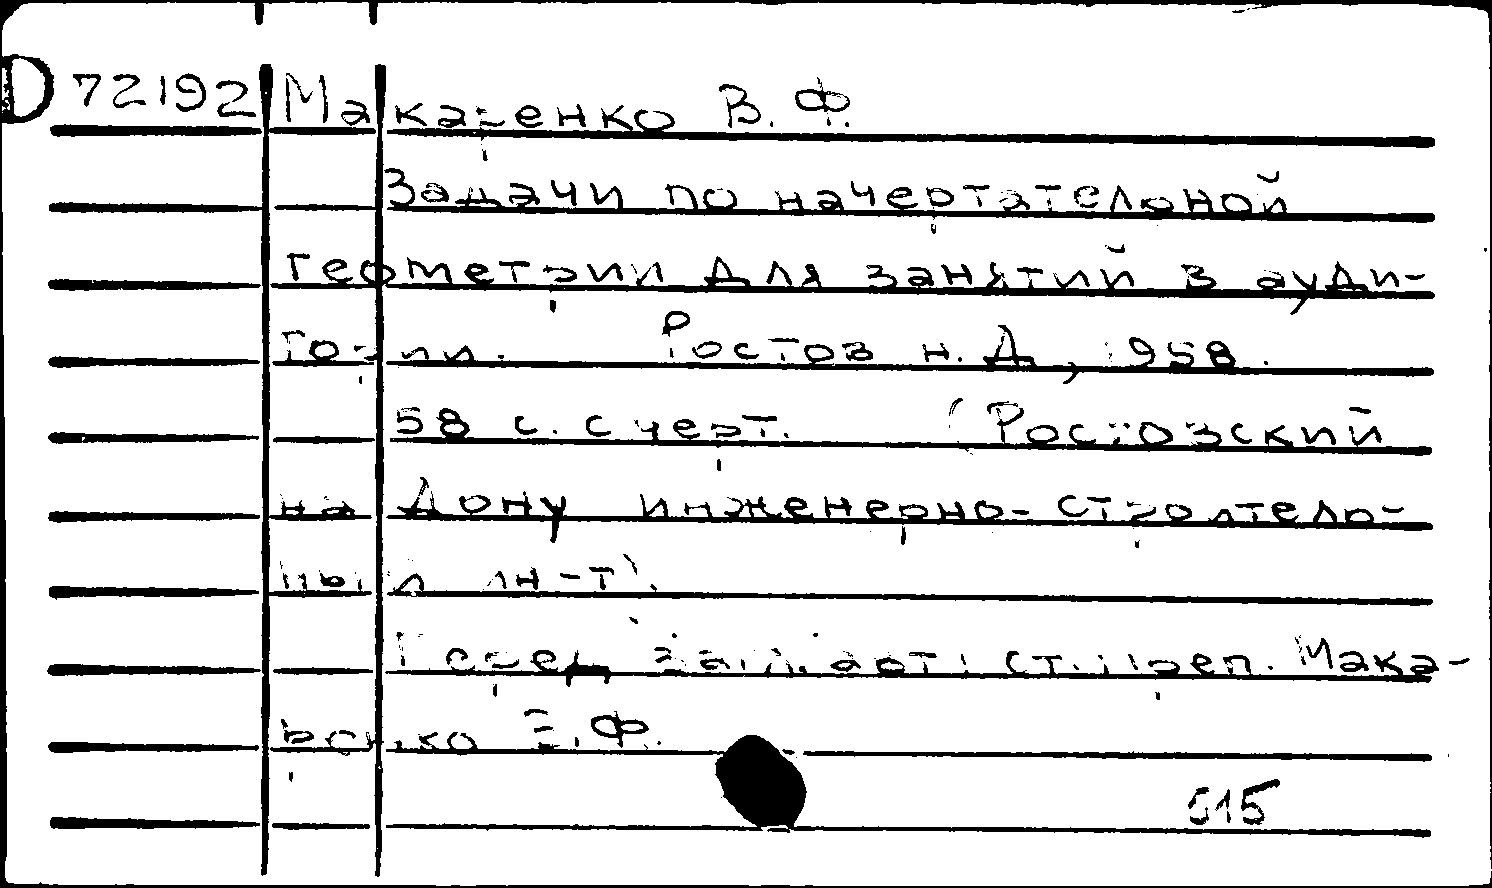 D 72192 Макаренко В. Ф.
Задачи по начертательной
геометрии для занятий в ауди-
тории. Ростов н. Д, 1958.
58 с. с черт. (Ростовский
на Дону инженерно-строитель-
ный ин-т).
Перед загл. авт: ст. преп. Мака-
ренко В. Ф.
515